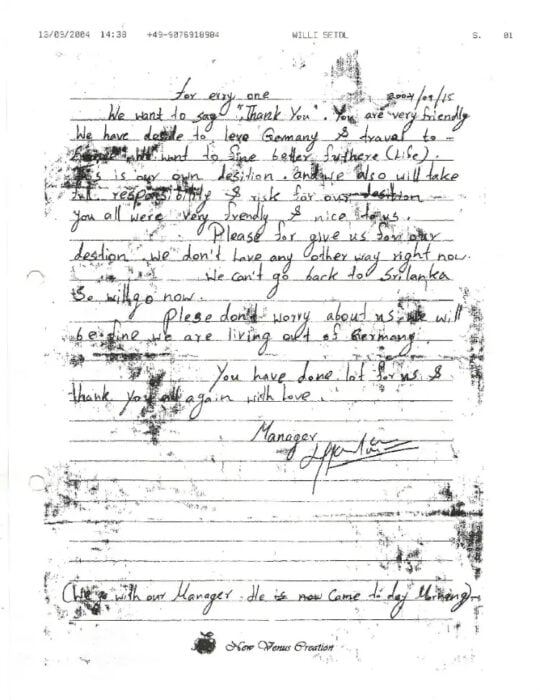 13/09/2004 14:38 +49-9076918904 WILLI SEIDL S. 01
for erry one 2004/09/15
We want to say "Thank You". You are very friendly
We have deside to leve Germany & travel to -
and want to fine better futhere (Life).
is our own desition. and we also will take
responsibility & risk for our desition
you all were very frendly & nice to us.
Please for give us for our
destion. We don't have any other way right now.
We can't go back to Srilanka
So will go now.
Plese don't worry about us. we will
be fine we are living out of Germany.
You have done lot for us &
thank you all again with love.
Manager
(We go with our Manager. He is now come to day Morning).
New Venus Creation